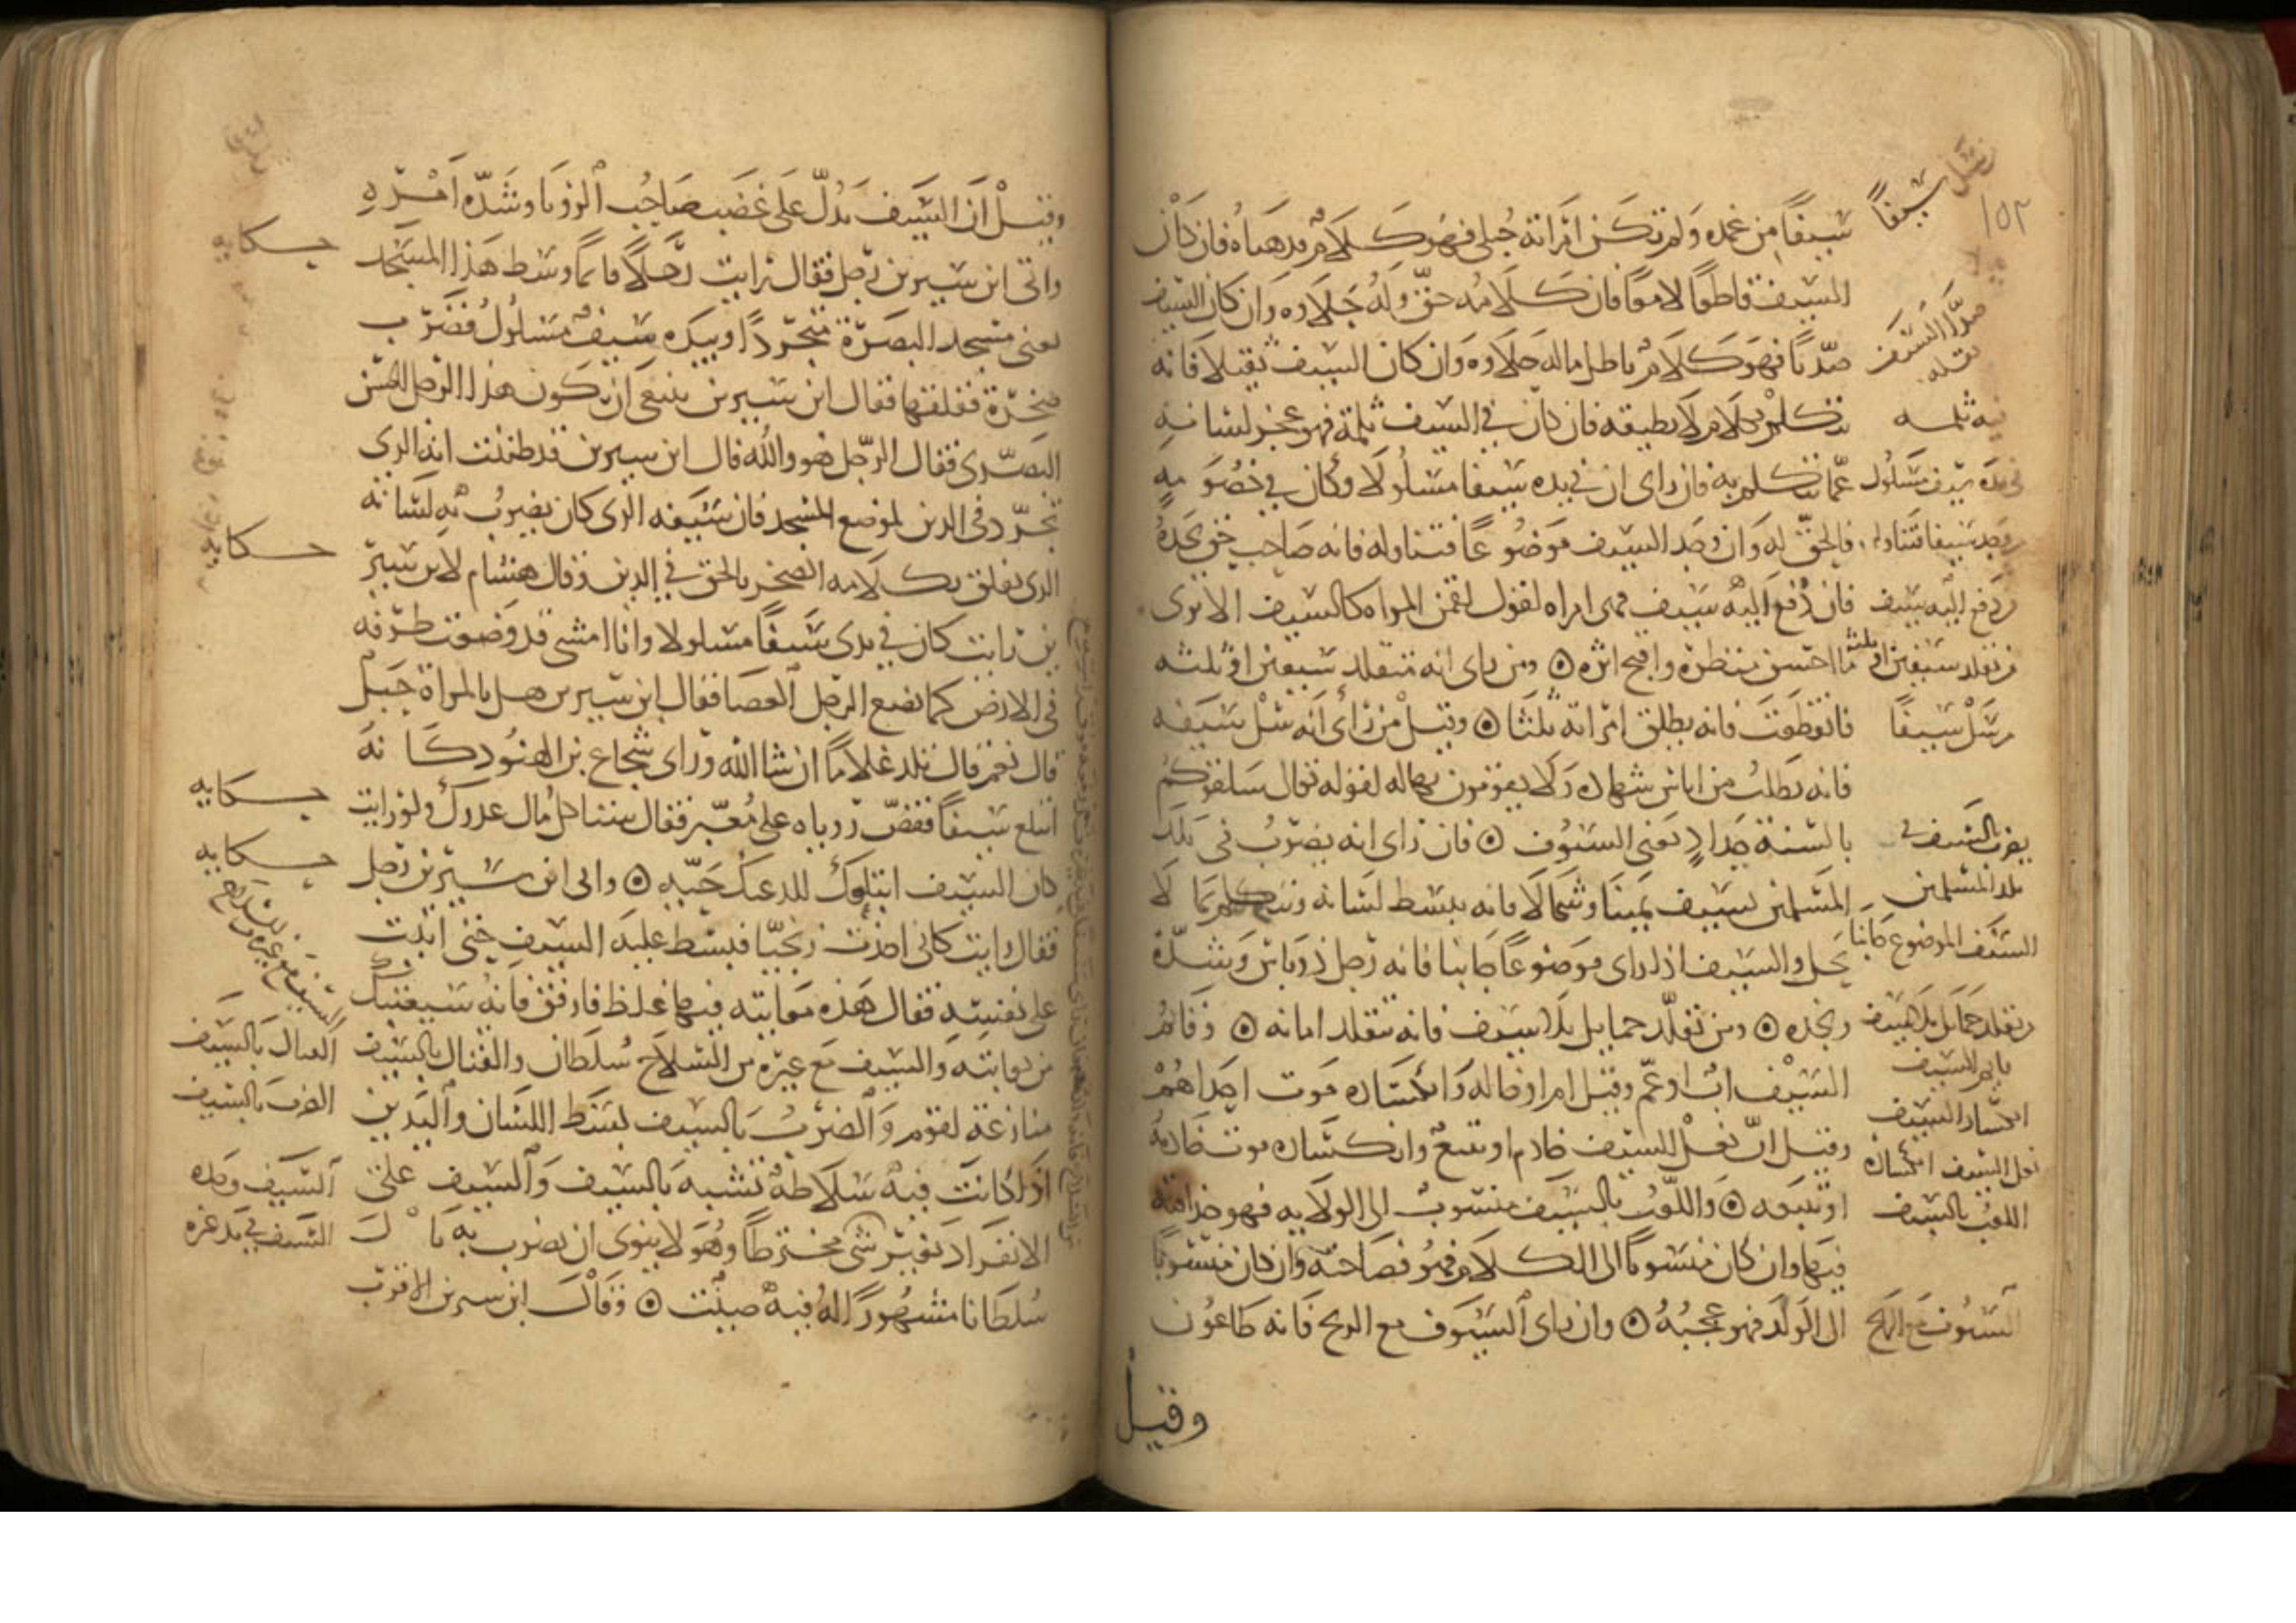 ١٥٢
سيفًا من غمده ولم تكن امراته حبلى فهو كلام قد هياه فان كان
السيف قاطعًا لامعًا فان كلامه حق وله حلاوه وان كان السيف
صديًا فهو كلام باطل ماله حلاوه وان كان السيف ثقيلا فانه
يتكلم بكلام لا يطيقه فان كان في السيف ثلمة فهو عجز لسانه
عما يتكلم به فان راى ان في يده سيفا مسلولا وكان في خصومه
فالحق له وان وجد السيف موضوعًا فتناوله فانه صاحب حق يجده
فان دفع اليه سيف فهى امراه لقول لقمن المراه كالسيف الا ترى
ما احسن منظره واقبح اثره ۞ ومن راى انه متقلد سيفين او ثلثه
فانقطعت فانه يطلق امراته ثلثا ۞ وقيل من راى انه سل سيفه
فانه يطلب من اناس شهاده ولا يقومون بها له لقوله تعال سلقوكم
بالسنة حداد يعنى السيوف ۞ فان راى انه يضرب فى بلد
المسلمين بسيف يمينا وشمالا فانه يبسط لسانه ويتكلم بما لا
يحل والسيف اذا راى موضوعًا جانبا فانه رجل ذو باس وشدة
ونجده ۞ ومن تقلد حمايل بلا سيف فانه يتقلد امانه ۞ وقائم
السيف اب او عم وقيل ام او خاله وانكساره موت احداهم
وقيل ان نعل السيف خادم او تبيع وانكساره موت خادمه
او تبيعه ۞ واللعب بالسيف منسوب الى الولايه فهو حذاقته
فيها وان كان منسوبا الى الكلام فهو فصاحته وان كان منسوبًا
الى الولد فهو عجبه ۞ وان راى السيوف مع الريح فانه طاعون
وقيل
سل سيفًا
صدا السيف
ثقله
فيه ثلمه
في يده سيف مسلول
وجد سيفا فتناوله
دفع اليه سيف
من تقلد سيفين او ثلثه
من سل سيفًا
يضرب بالسيف في
بلد المسلمين
السيف الموضوع جانبا
من تقلد حمايل بلا سيف
قايم السيف
انكسار السيف
نعل السيف انكساره
اللعب بالسيف
السيوف مع الريح
وقيل ان السيف يدل على غضب صاحب الرويا وشده امره
واتى ابن سيرين رجل فقال رايت رجلًا قايمًا وسط هذا المسجد
يعنى مسجد البصرة متجردًا وبيده سيف مسلول فضرب
صخرة ففلقها فقال ابن سيرين ينبغى ان يكون هذا الرجل الحسن
البصرى فقال الرجل هو والله قال ابن سيرين قد ظننت انه الذى
تجرد فى الدين لموضع المسجد فان سيفه الذى كان يضرب به لسانه
الذى يفلق بكلامه الصخر بالحق فى الدين وقال هشام لابن سير
ين رايت كان في يدى سيفًا مسلولا وانا امشى قد وضعت طرفه
فى الارض كما يضع الرجل العصا فقال ابن سيرين هل بالمراة حبل
قال نعم قال تلد غلامًا ان شا الله وراى شجاع من الهنود كانه
ابتلع سيفًا فقص روياه على معبر فقال ستاكل مال عدوك ولو رايت
كان السيف ابتلعك للدغك حيه ۞ واتى ابن سيرين رجل
فقال رايت كانى اخذت زنجيًا فبسط عليه السيف حتى ابنت
على نفسه فقال هذه معاتبه فيها غلظ فارفق فانه سيعتبك
من معاتبته والسيف مع غيره من السلاح سلطان والقتال بالسيف
منازعة لقوم والضرب بالسيف بسط اللسان واليدين
اذا كانت فيه سلاطة تشبه بالسيف والسيف على
الانفراد بغير شى مخترطًا وهو لا ينوى ان يضرب به مال
سلطانا مشهورًا له فيه صيت ۞ وقال ابن سيرين الاقرب
حكايه
حكايه
حكايه
حكايه
السيف مع غيره من السلاح
القتال بالسيف
الضرب بالسيف
السيف وحده
السيف في يد غيره